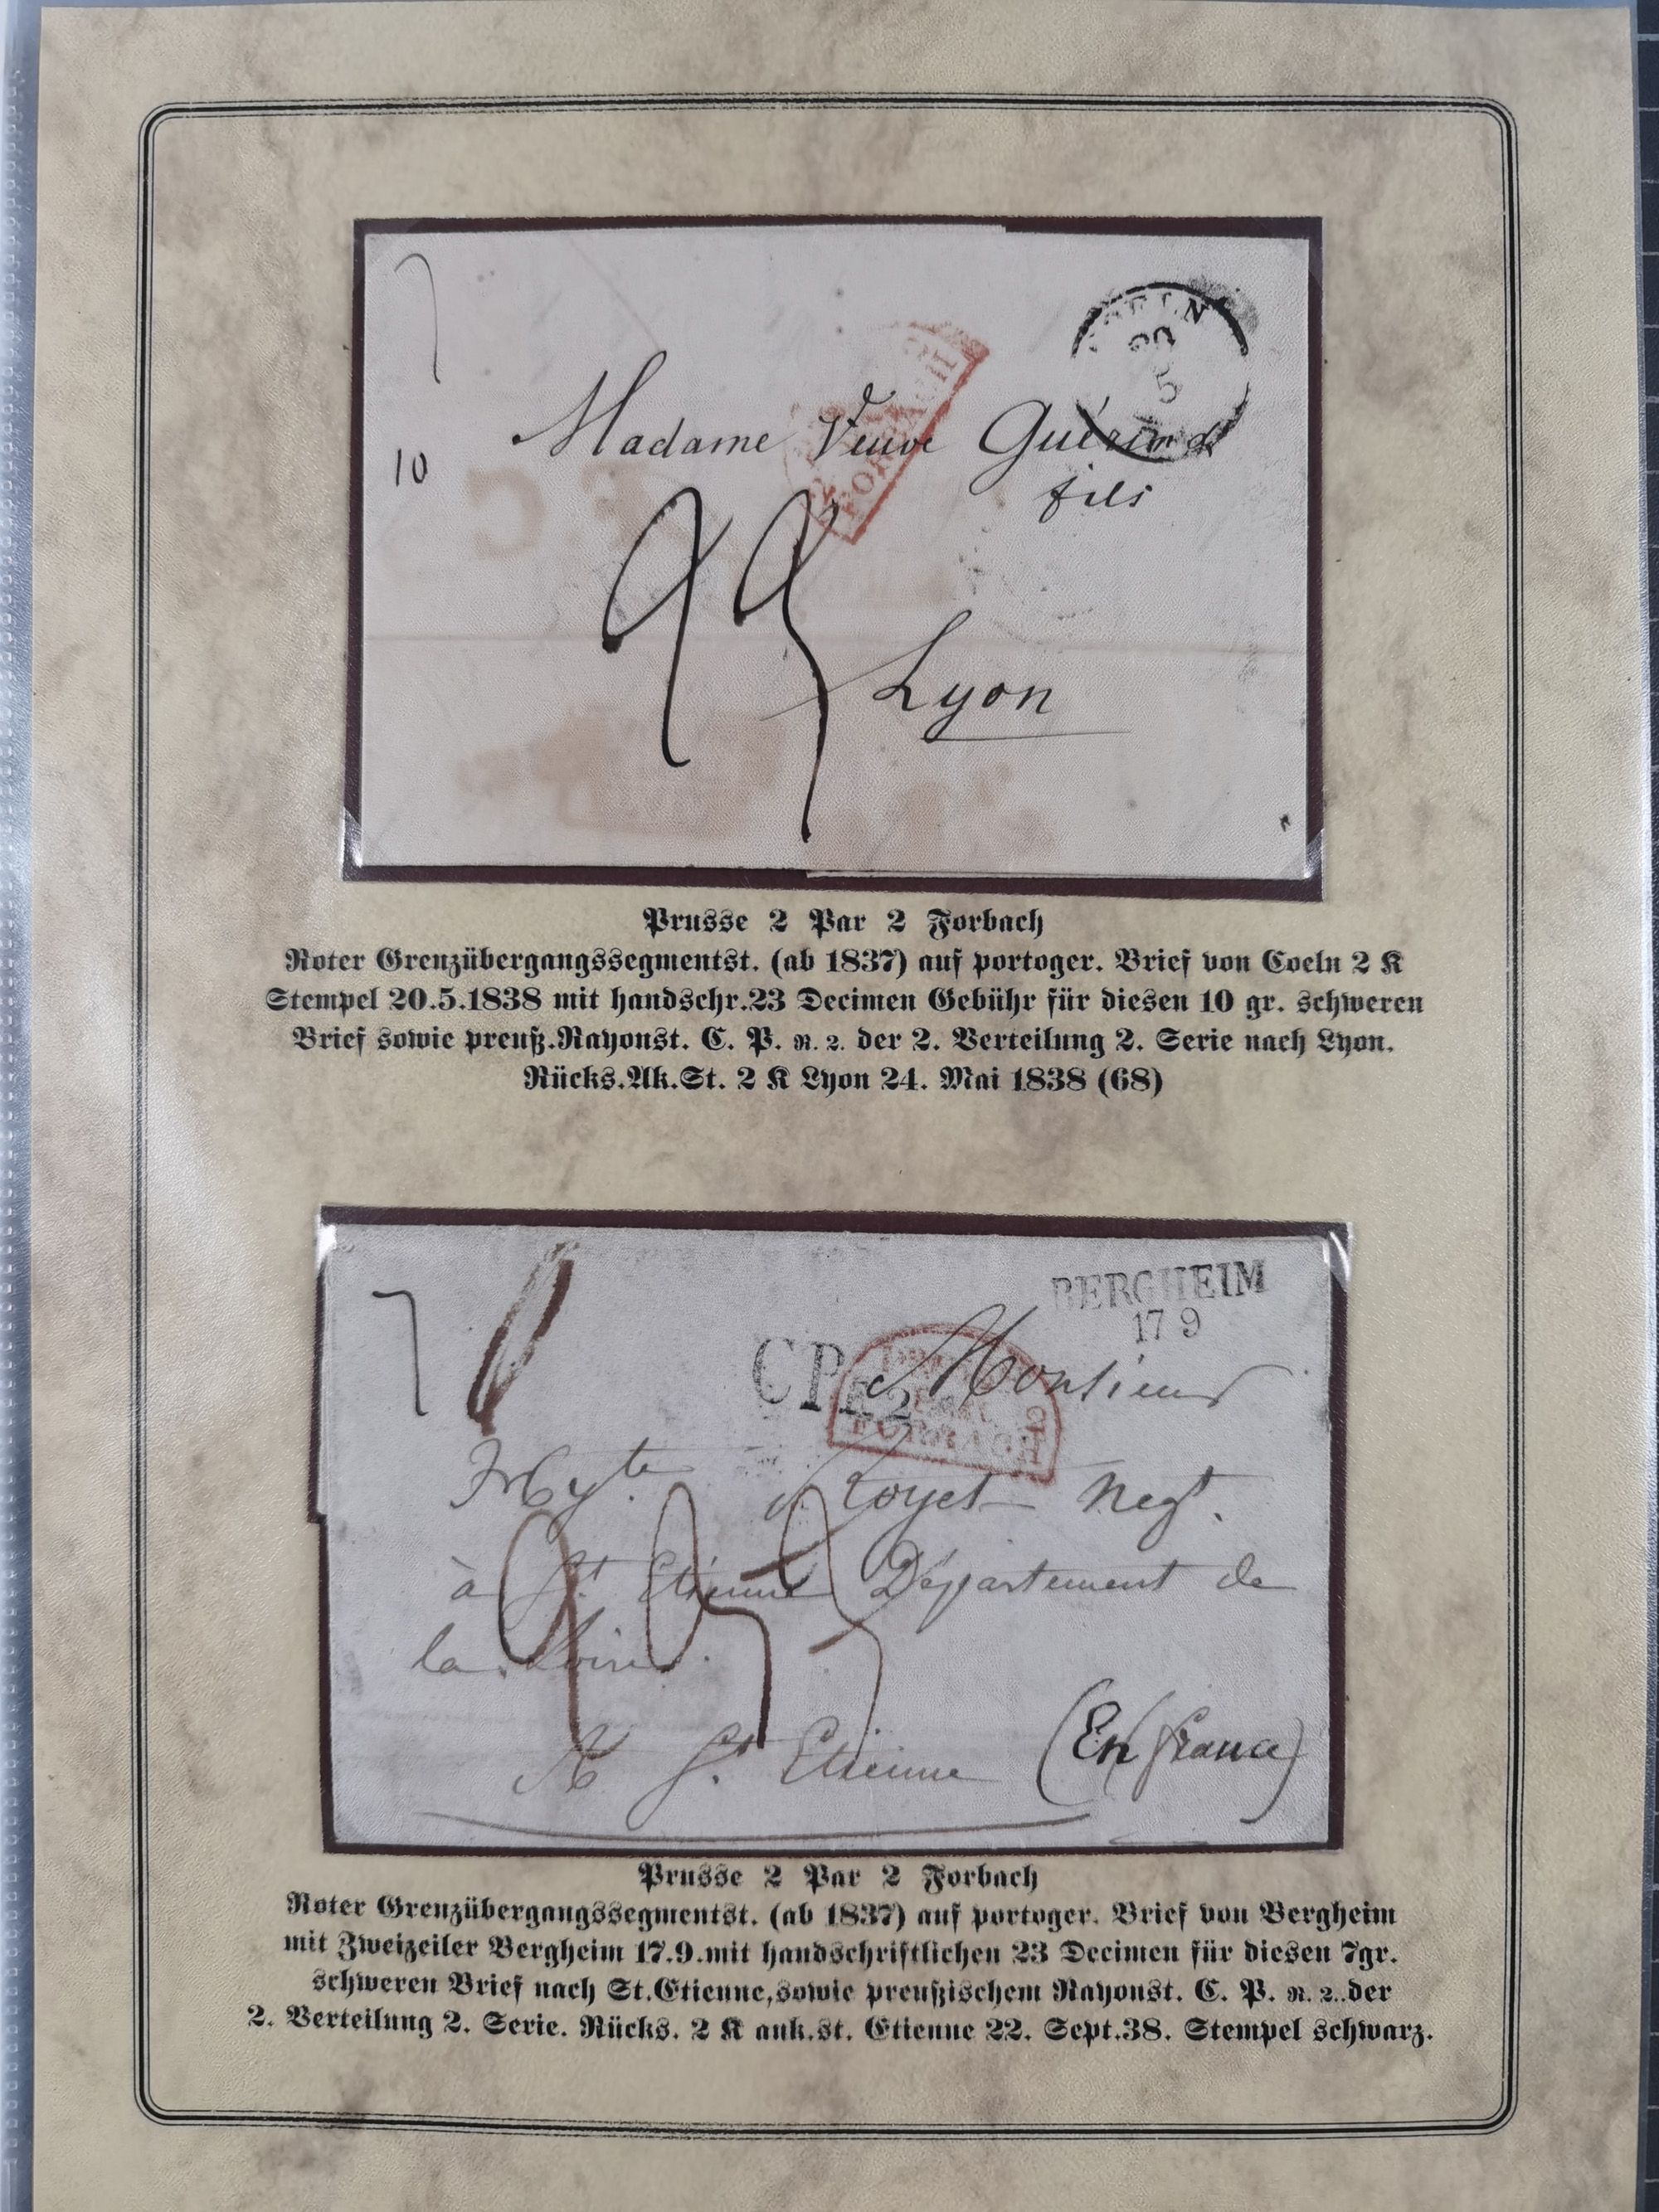 20
5
FORBACH
Madame Veuve Guérin &
fils
10
23
Lyon
Prusse 2 Par 2 Forbach
Roter Grenzübergangssegmentst. (ab 1837) auf portoger. Brief von Coeln 2 K
Stempel 20.5.1838 mit handschr.23 Decimen Gebühr für diesen 10 gr. schweren
Brief sowie preuß.Rayonst. C. P. R. 2. der 2. Verteilung 2. Serie nach Lyon.
Rücks.Ak.St. 2 K Lyon 24. Mai 1838 (68)
BERGHEIM
17 9
7
CPR2
FORBACH
Monsieur
Negt.
à St Etienne Département de
la Loire.
A St Etienne (En france)
Prusse 2 Par 2 Forbach
Roter Grenzübergangssegmentst. (ab 1837) auf portoger. Brief von Bergheim
mit Zweizeiler Bergheim 17.9.mit handschriftlichen 23 Decimen für diesen 7gr.
schweren Brief nach St.Etienne,sowie preußischem Rayonst. C. P. R. 2..der
2. Verteilung 2. Serie. Rücks. 2 K ank.st. Etienne 22. Sept.38. Stempel schwarz.